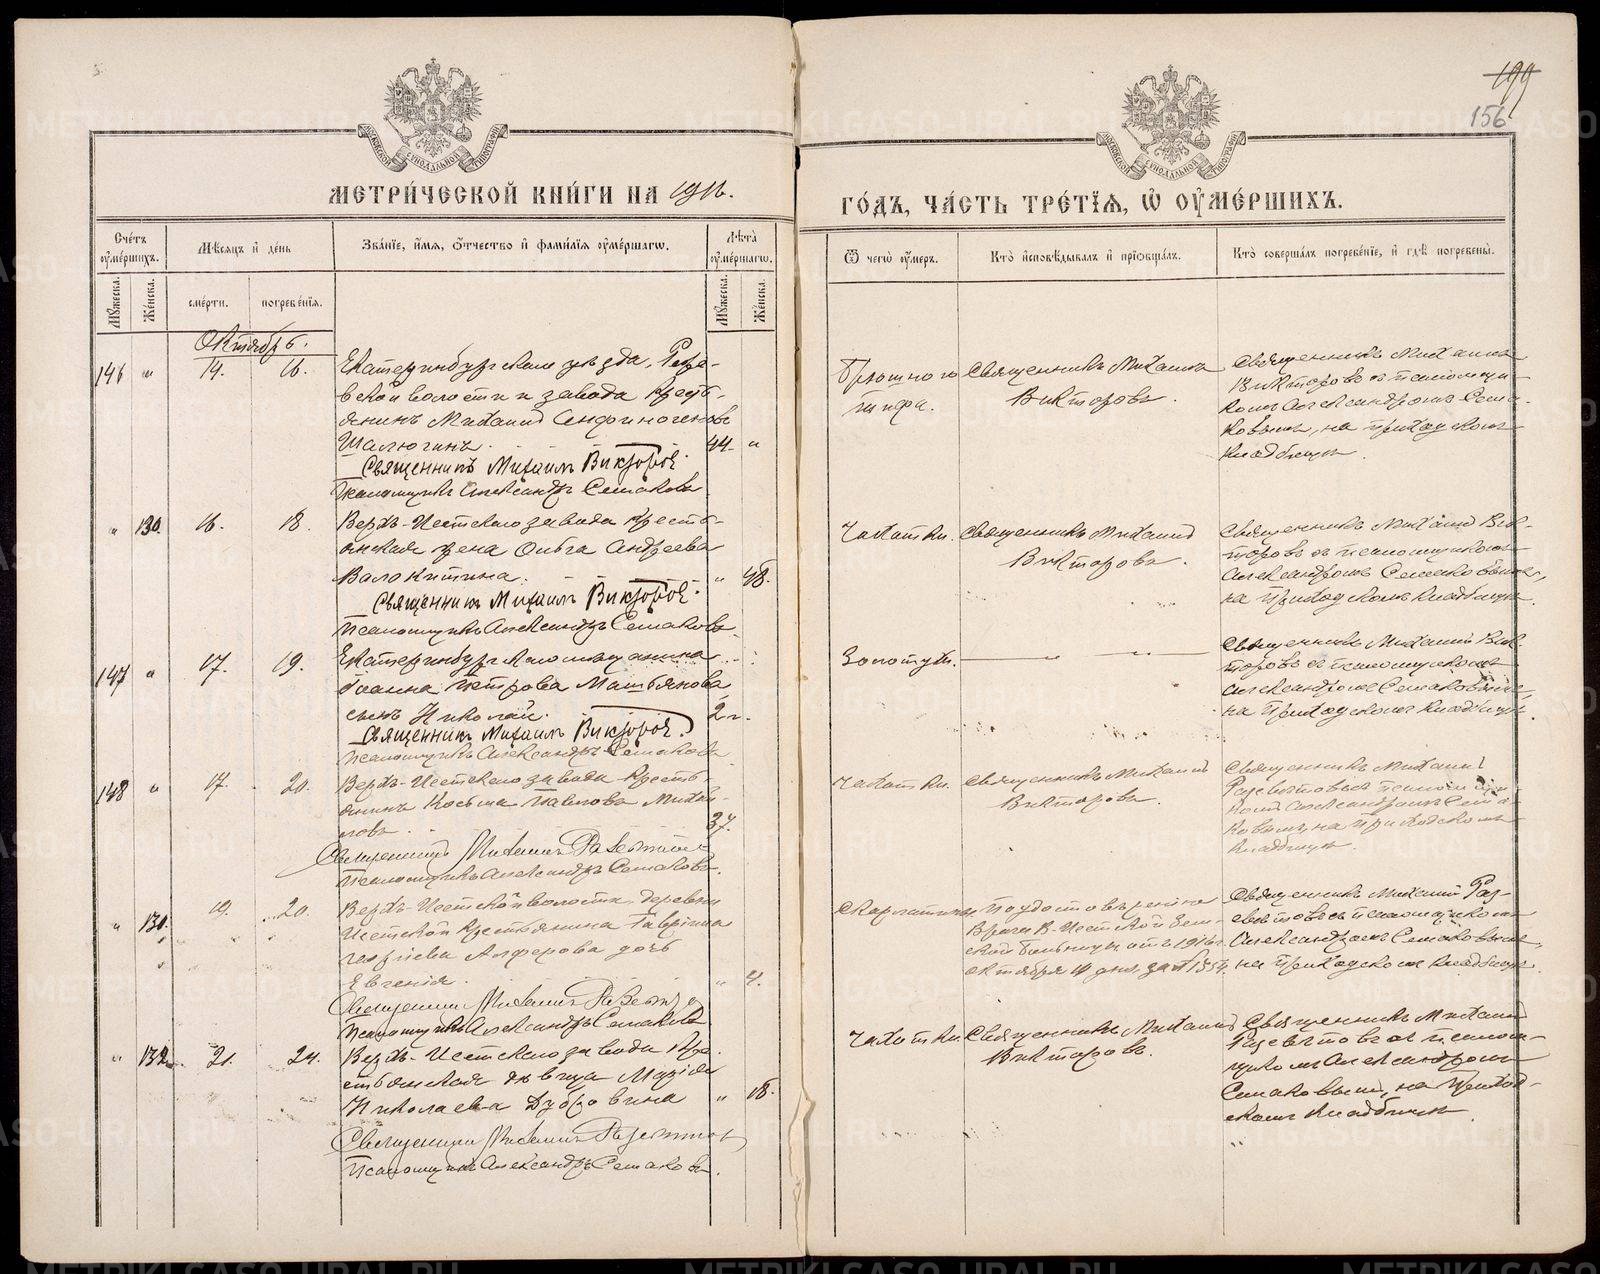 199
156
МЕТРИЧЕСКОЙ КНИГИ НА 1916.
ГОДЪ, ЧАСТЬ ТРЕТІЯ, Ѡ ОУМЕРШИХЪ.
Счетъ оумершихъ.
Мѣсяцъ и день
Званіе, имя, отчество и фамилія оумершагѡ.
Лѣта оумершагѡ.
Ѿ чегѡ оумеръ.
Кто исповѣдывалъ и пріобщалъ.
Кто совершалъ погребеніе, и гдѣ погребены.
Мужеска.
Женска.
смерти.
погребенія.
Мужеска.
Женска.
Октябрь.
146 " 14. 16.
Екатеринбургскаго уѣзда,
вской волости и завода крестъ-
янинъ Михаилъ Андрогеновъ
Шалюгинъ. 44. "
Священникъ Михаилъ Викторовъ.
Псаломщикъ Александръ Семаковъ
Брюшного
тифа.
Священникъ Михаилъ
Викторовъ.
Священникъ Михаилъ
Викторовъ съ псаломщи-
комъ Александромъ Сема-
ковымъ, на приходскомъ
кладбищѣ.
" 130. 16. 18.
Верхъ-Исетскаго завода кресть-
янская жена Ольга Андреева
Валокитина. " 48.
Священникъ Михаилъ Викторовъ.
Псаломщикъ Александръ Семаковъ.
Чахотки.
Священникъ Михаилъ
Викторовъ.
Священникъ Михаилъ Вик-
торовъ съ псаломщикомъ
Александромъ Семаковымъ,
на приходскомъ кладбищѣ.
147 " 17. 19.
Екатеринбургскаго мѣщанина
Іоанна Петрова Матвянова
сынъ Николай. 2 г.
Священникъ Михаилъ Викторовъ.
Псаломщикъ Александръ Семаковъ
Золотухи.
Священникъ Михаилъ Вик-
торовъ съ псаломщикомъ
Александромъ Семаковымъ,
на приходскомъ кладбищѣ.
148 " 17. 20.
Верхъ-Исетскаго завода кресть-
янинъ Косьма Павловъ Михай-
ловъ. 37.
Священникъ Михаилъ Развѣтовъ
Псаломщикъ Александръ Семаковъ.
Чахотки.
Священникъ Михаилъ
Викторовъ.
Священникъ Михаилъ
съ псаломщи-
комъ Александромъ Сема-
ковымъ, на приходскомъ
кладбищѣ.
" 131. 19. 20.
Верхъ-Исетской волости деревни
Исетской крестьянина Гавріила
Георгіева Алферова дочь
Евгенія. " 4.
Священникъ Михаилъ
Псаломщикъ Александръ Семаковъ
Скарлатины.
По удостовѣренію
Врача В.-Исетской Зем-
ской больницы отъ 1916 г.
октября 19 дня за № 1554.
Священникъ Михаилъ
съ псаломщикомъ
Александромъ Семаковымъ,
на приходскомъ кладбищѣ.
" 132. 21. 24.
Верхъ-Исетскаго завода кре-
стьянская дѣвица Марія
Николаева Дубровина " 18.
Священникъ Михаилъ
Псаломщикъ Александръ Семаковъ.
Чахотки.
Священникъ Михаилъ
Викторовъ.
Священникъ Михаилъ
съ псалом-
щикомъ Александромъ
Семаковымъ, на приход-
скомъ кладбищѣ.
METRIKI.GASO-URAL.RU